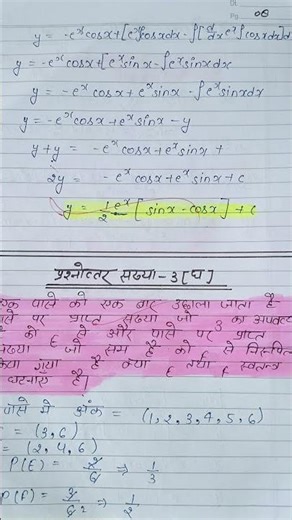 08
y = -eˣcosx+[eˣ∫cosxdx-∫[d/dx eˣ∫cosxdx]d
y = -eˣcosx+[eˣsinx-∫eˣsinxdx
y = -eˣcosx+eˣsinx-∫eˣsinxdx
y = -eˣcosx+eˣsinx-y
y+y = -eˣcosx+eˣsinx+
2y = -eˣcosx+eˣsinx+c
y = 1/2 eˣ[sinx-cosx]+c
प्रश्नोत्तर संख्या-3[घ]
एक पासे को एक बार उछाला जाता है
पासे पर प्राप्त संख्या जो 3 का अपवर्त्य
को E से और पासे पर प्राप्त
संख्या जो सम है को F से निरूपित
किया गया है क्या E तथा F स्वतन्त्र
घटनाएं हैं।
पासे में अंक = (1,2,3,4,5,6)
= (3,6)
= (2,4,6)
P(E) = 2/6 ⇒ 1/3
P(F) = 3/6 2 ⇒ 1/2